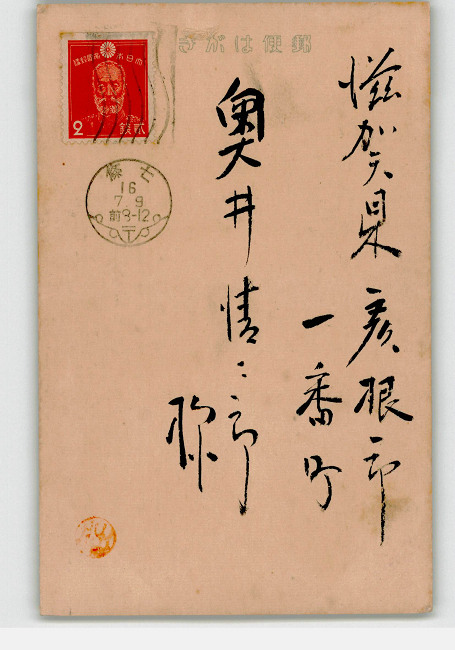 郵便はがき
大日本帝國郵便
2 貳錢
七條
16
7 9
前8-12
滋賀県彦根市
一番町
奥井
様